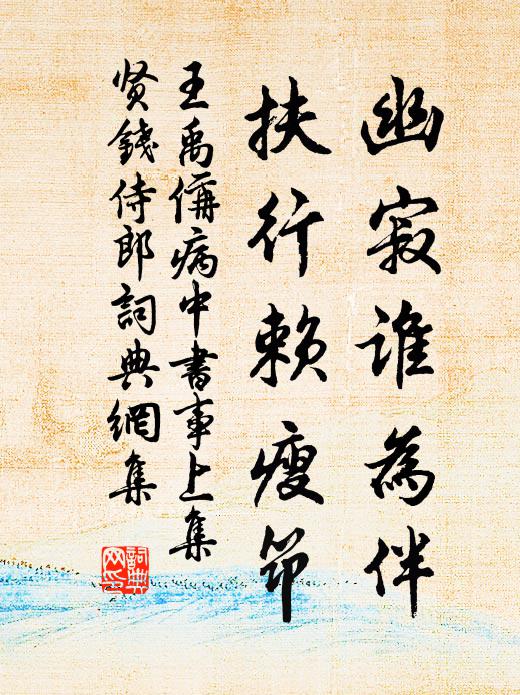 幽寂誰為伴
扶行賴瘦筇
王禹偁病中書事上集
贤錢侍郎詞典網集
詞典网印